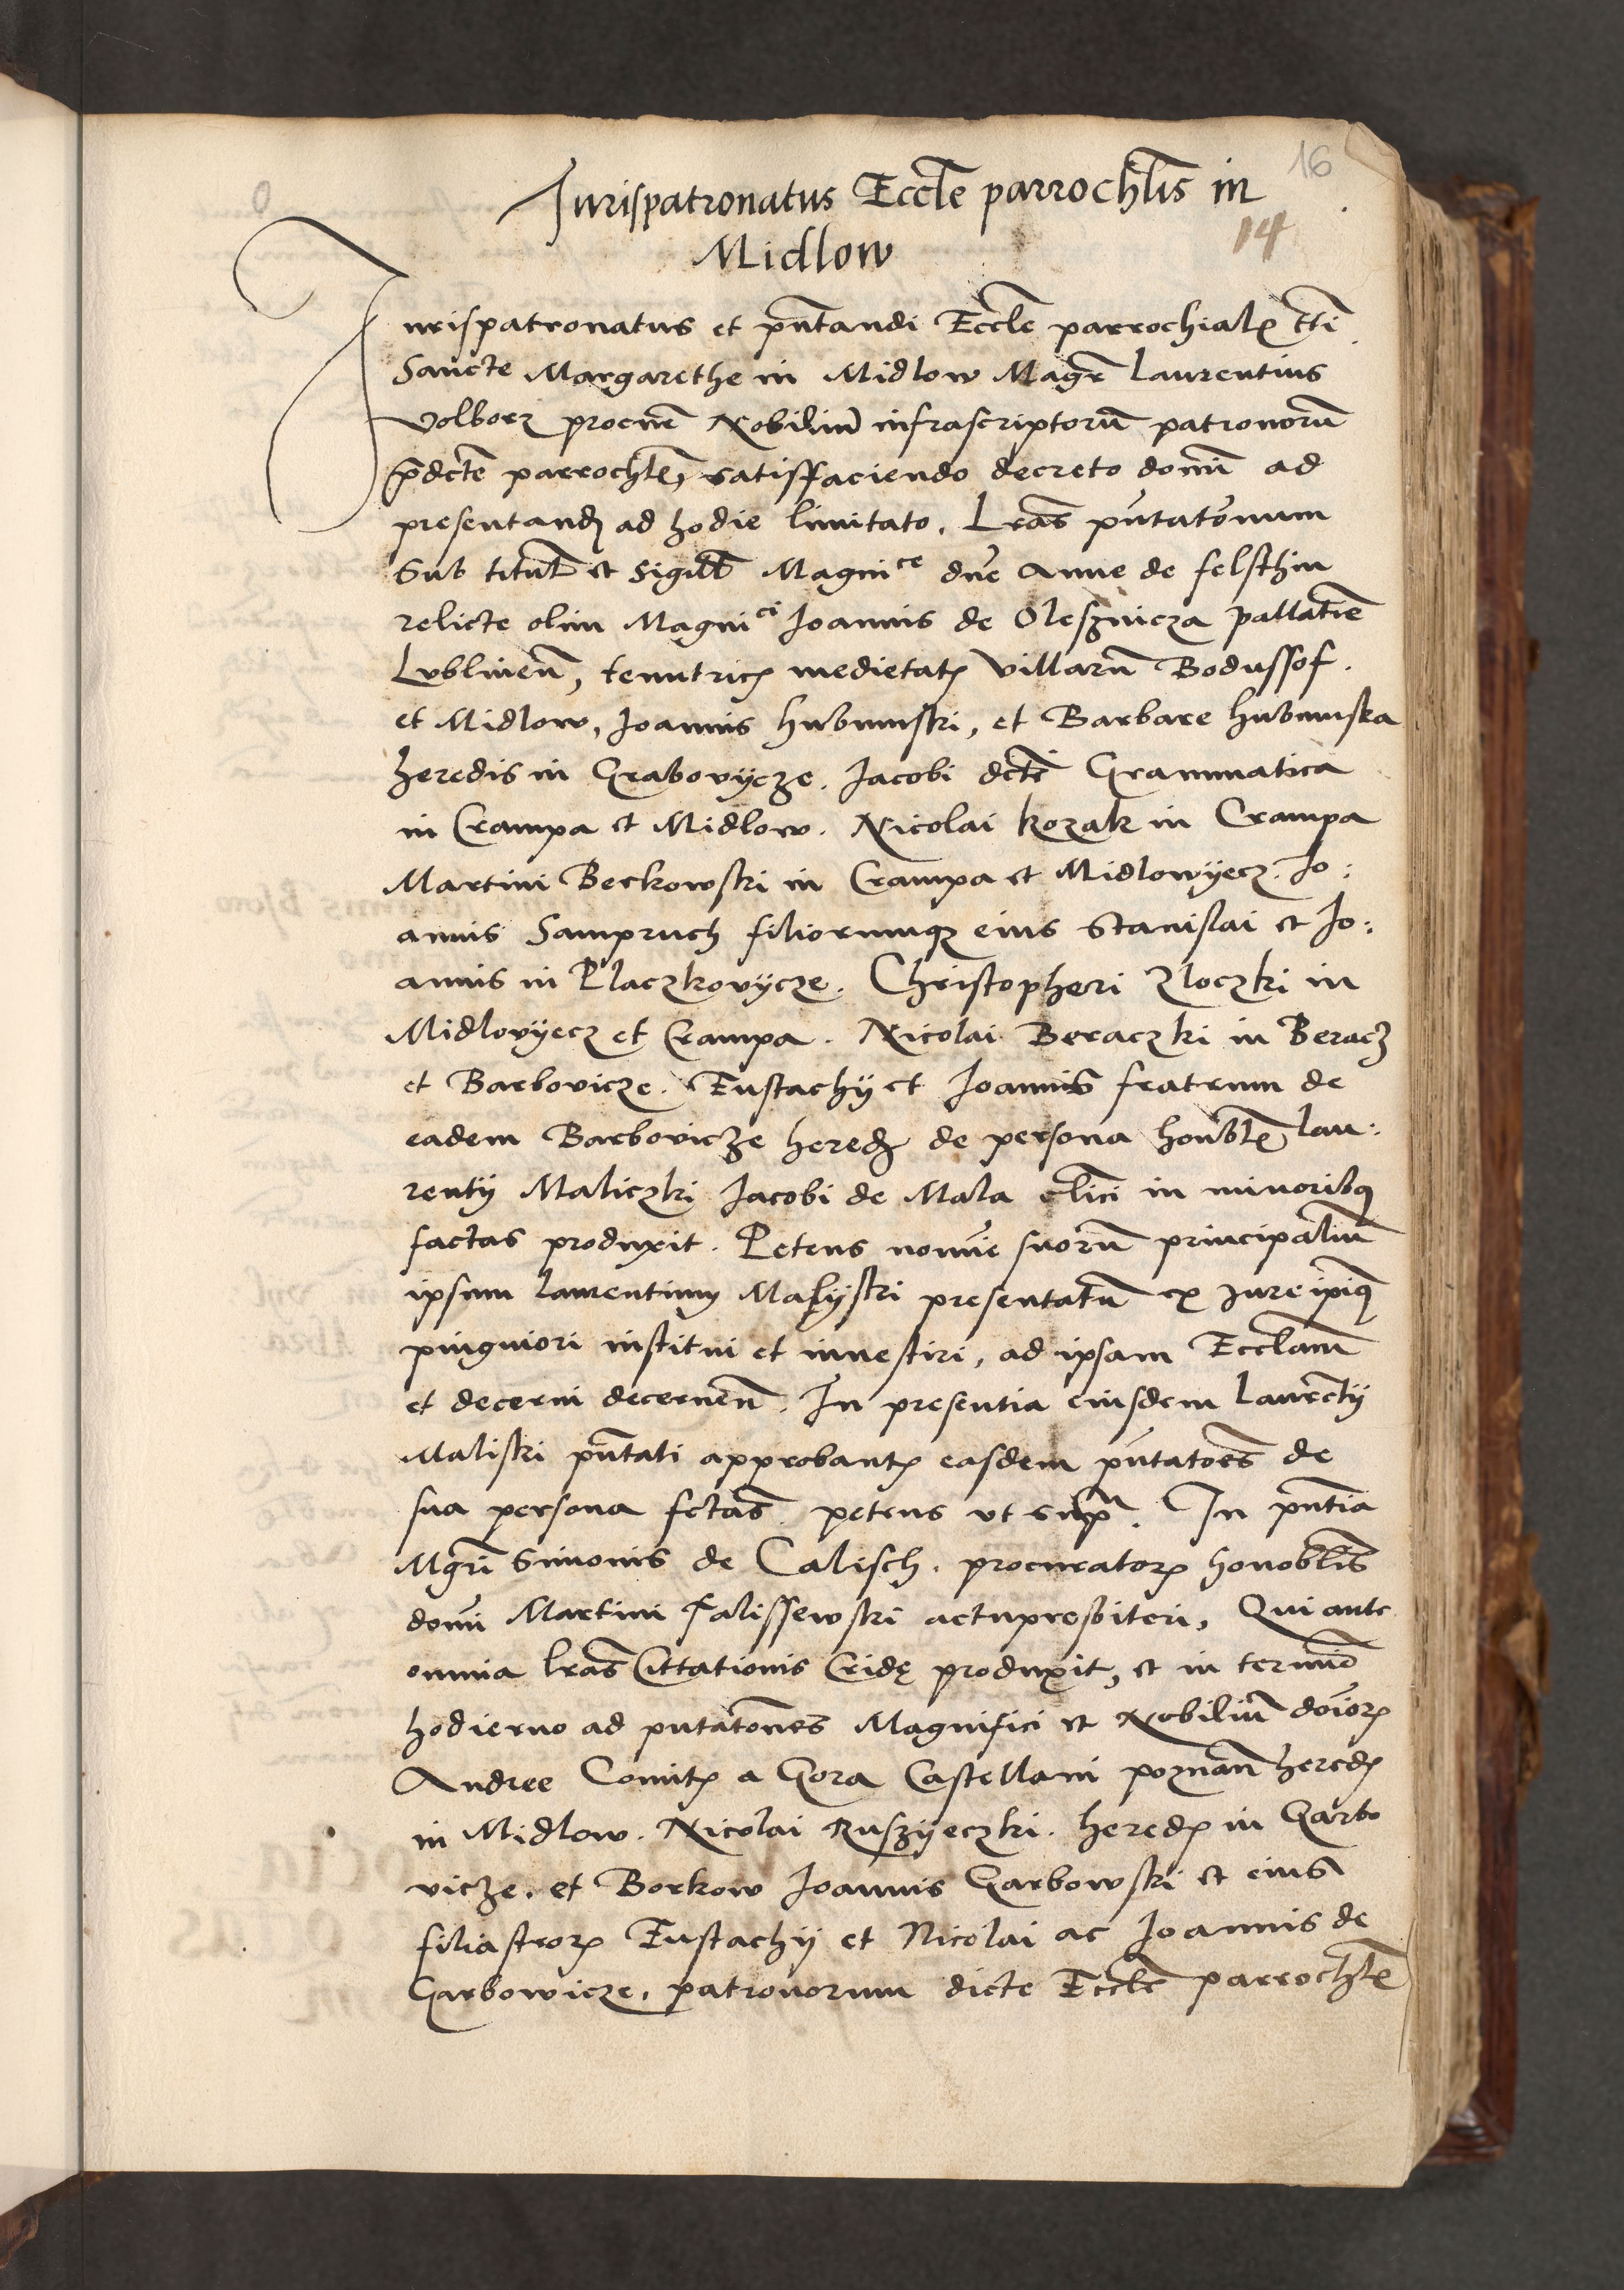 16
Jurispatronatus Eccle parrochlis in
14
Midlow
Jurispatronatus et pntandi Eccle parrochialis tti
Sancte Margarethe in Midlow Magr Laurentius
Volborz procne Nobilium infrascriptorum patronorum
pdcte parrochle, satisfaciendo decreto domi ad
presentand ad hodie limitato. Lras pntatonum
Sub titul et sigill Magnice dne Anne de felsthin
relicte olim Magnici Joannis de Olesznicza pallatie
Lublinen, tenutricis medietatis villarum Bodussof.
et Midlow, Joannis Hubnuski, et Barbare hubnuska
heredis in Grabovycze. Jacobi dcti Grammatica
in Crampa et Midlow. Nicolai kozak in Crampa
Martini Beckowski in Crampa et Midlowyecz. Jo:
annis Sampruch filiorumque eius Stanislai et Jo:
annis in Placzkovycze. Christopheri Zloczki in
Midlovyecz et Crampa. Nicolai Beraczki in Beracz
et Barbovicze. Eustachij et Joannis fratrum de
eadem Barbovicze hered de persona honoble Lau:
rentij Maliczki Jacobi de Mala clici in minoribus
factas produxit. Petens nomine suorum principalium
ipsum Laurentium Malyski presentatum ex jure ipsique
pinguiori institui et investiri, ad ipsam Ecclam
et decerni decernen. In presentia eiusdem Laurentij
Maliski pntati approbantis easdem pntatoes de
sua persona fctas petens ut supra. In pntia
Mgri Simonis de Calisch. procuratoris honoblis
domi Martini Falissewski actupresbiteri, Qui ante
omnia lras Cittationis Cride produxit, et in termino
hodierno ad pntatones Magnifici et Nobilium doiorum
Andree Comitis a Gora Castellani poznan heredis
in Midlow. Nicolai Ruszyeczki. heredis in Garbo
vicze. et Borkow Joannis Garbowski et eius
filiastrorum Eustachij et Nicolai ac Joannis de
Garbowicze, patronorum dicte Eccle parrochle